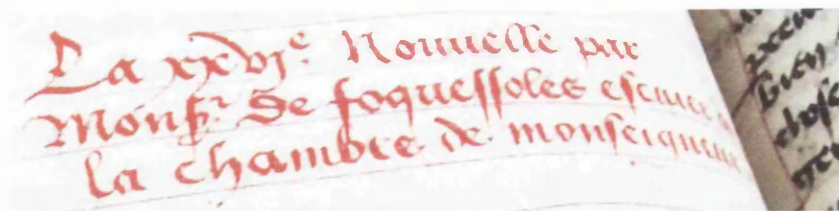 La xxvjᵉ. Nouuelle par
Monsʳ. de foquessoles escuier
la chambre de monseigneur
bien
chose